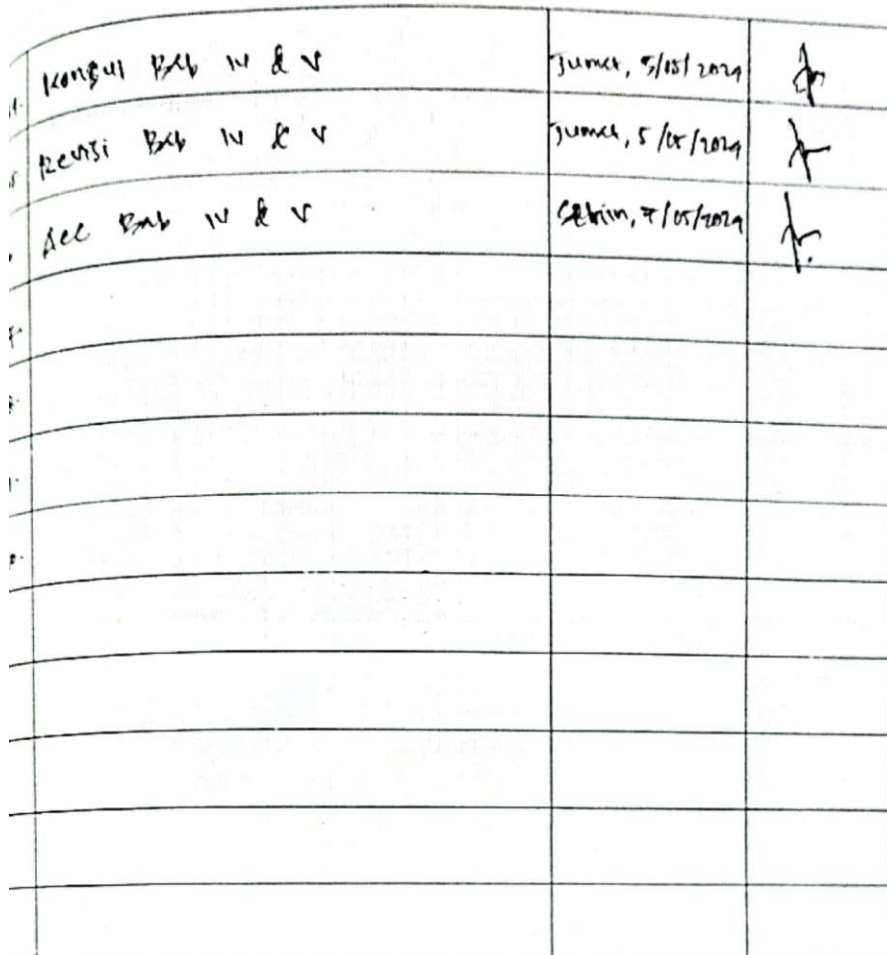 Konsul Bab IV & V Jumat, 5/05/2024
Revisi Bab IV & V Jumat, 5/05/2024
Acc Bab IV & V 7/05/2024